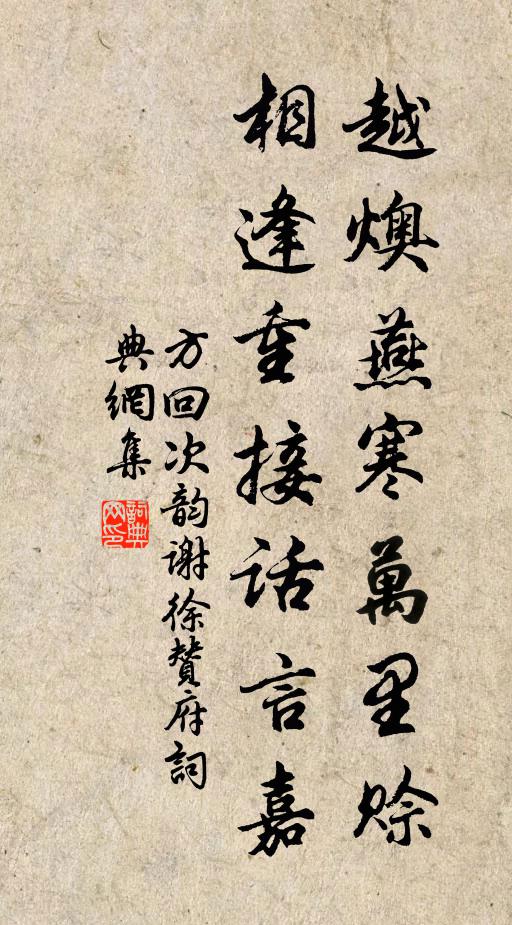 越燠燕寒萬里賒
相逢重接話言嘉
方回次韵謝徐贊府詞
典網集
詞典網印